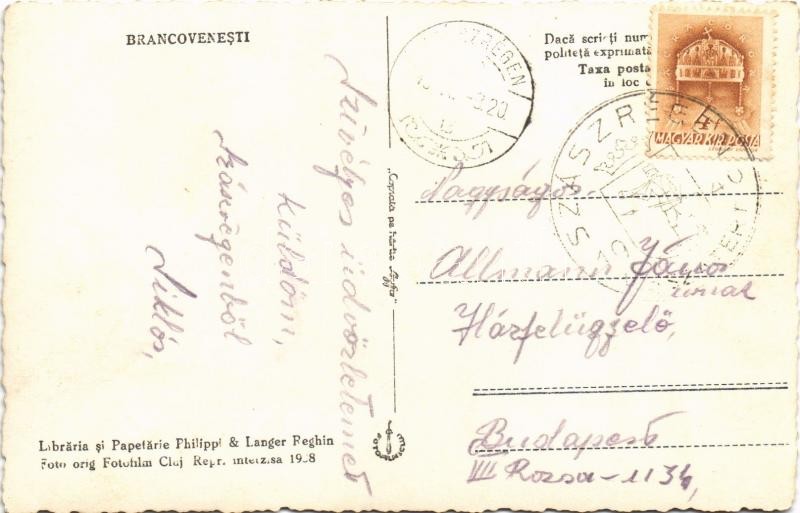 BRANCOVENEȘTI
Dacă scrieți num
politeță exprimată
Taxa posta
în loc
MAGYAR KIR. POSTA
SZÁSZRÉGEN
Szívélyes üdvözletemet
küldöm,
Szászrégenből
Siklós,
"Copiată pe hârtie
Nagyságos
Allmann János
urnak
Házfelügyelő,
Budapest
VII Rózsa
Librăria și Papetărie Philippi & Langer Reghin
Foto orig Fotofilm Cluj Repr. interzisa